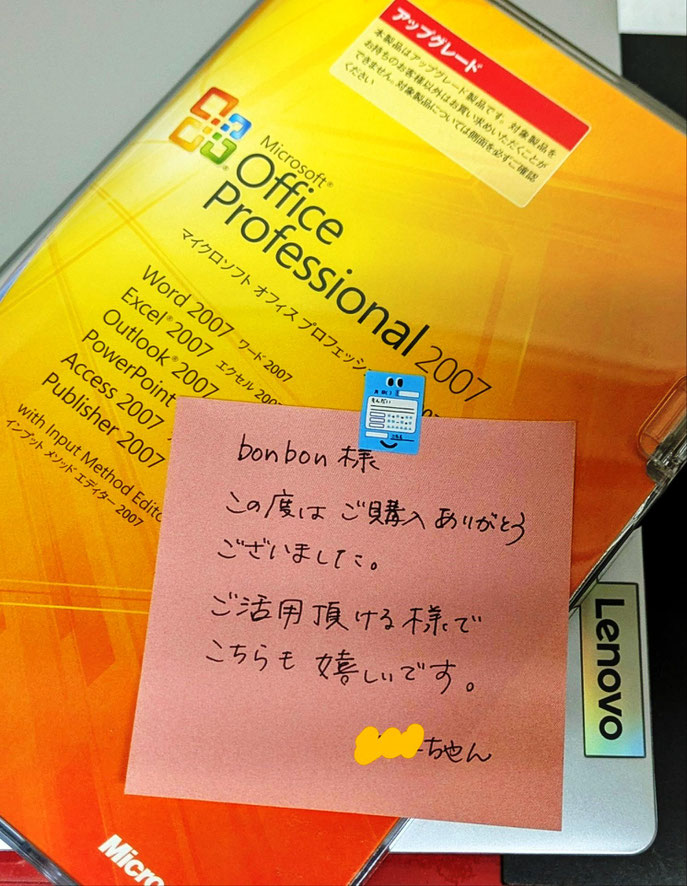 アップグレード
本製品はアップグレード製品です。対象製品を
お持ちのお客様以外はお買い求めいただくことが
できません。対象製品については側面を必ずご確認
ください
Microsoft®
Office
Professional 2007
マイクロソフト オフィス プロフェッショ
Word 2007 ワード 2007
Excel® 2007 エクセル 200
Outlook® 2007
PowerPoint
Access 2007
Publisher 2007
with Input Method Edito
インプット メソッド エディター 2007
bonbon 様
この度は ご購入 ありがとう
ございました。
ご活用頂ける様で
こちらも嬉しいです。
ちゃん
Lenovo
Micro